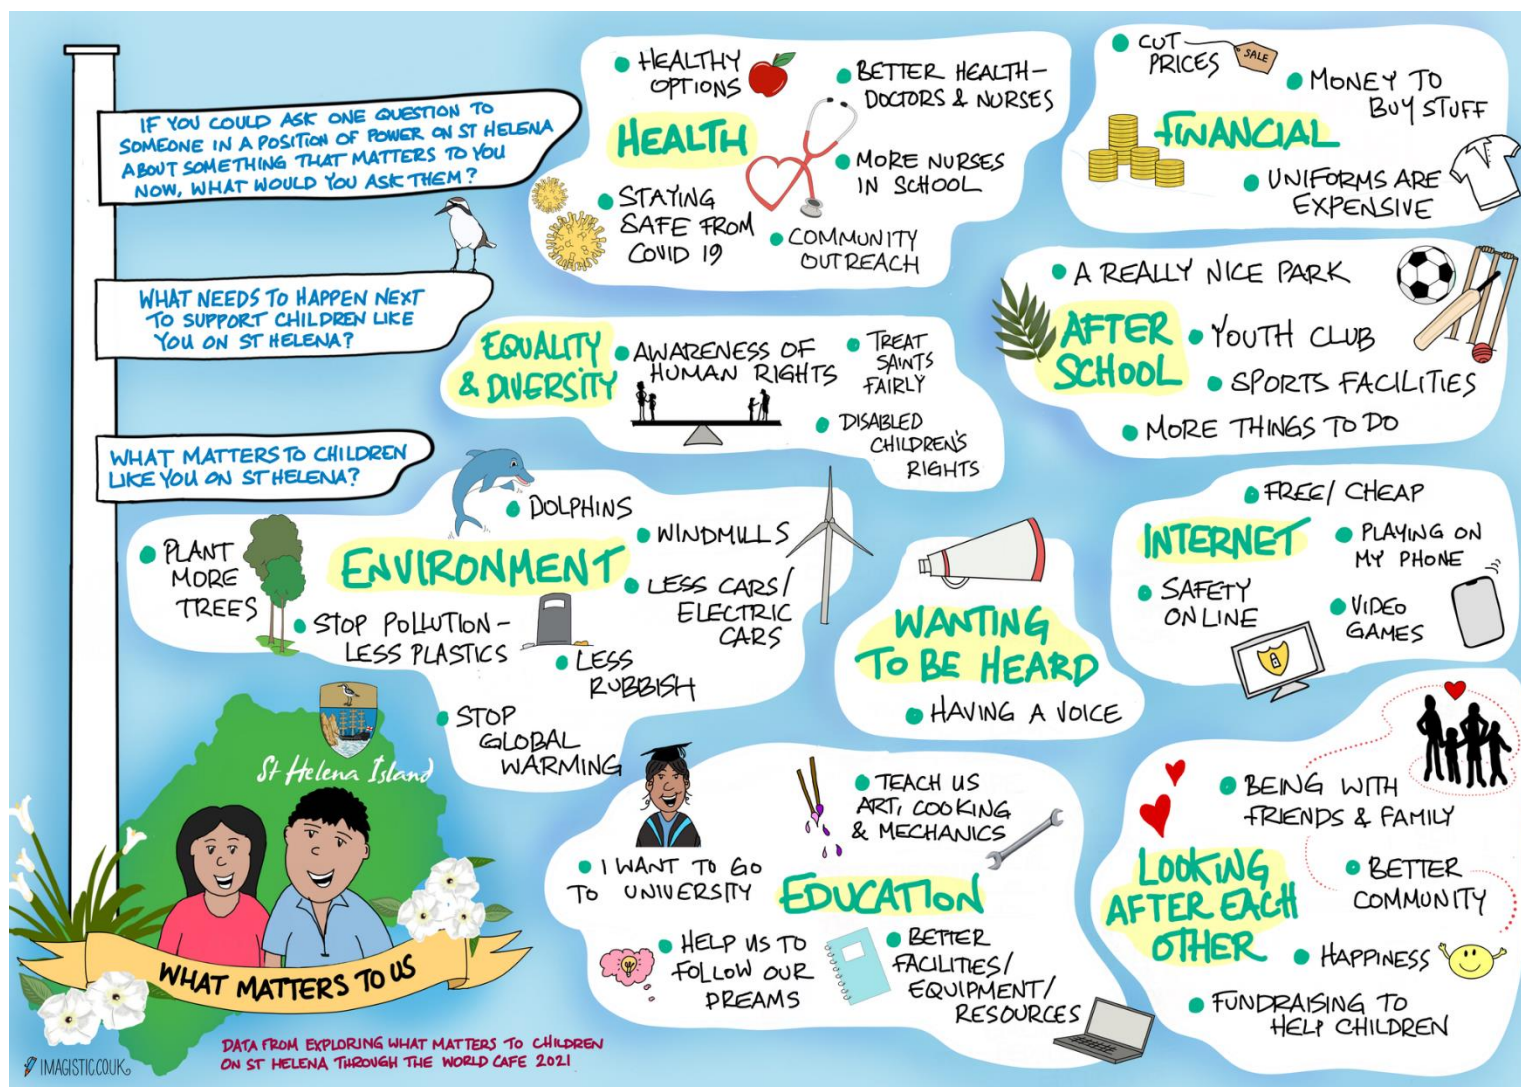 IF YOU COULD ASK ONE QUESTION TO
SOMEONE IN A POSITION OF POWER ON ST HELENA
ABOUT SOMETHING THAT MATTERS TO YOU
NOW, WHAT WOULD YOU ASK THEM?
WHAT NEEDS TO HAPPEN NEXT
TO SUPPORT CHILDREN LIKE
YOU ON ST HELENA?
WHAT MATTERS TO CHILDREN
LIKE YOU ON ST HELENA?
HEALTH
HEALTHY
OPTIONS
BETTER HEALTH-
DOCTORS & NURSES
MORE NURSES
IN SCHOOL
STAYING
SAFE FROM
COVID 19
COMMUNITY
OUTREACH
FINANCIAL
CUT
PRICES
SALE
MONEY TO
BUY STUFF
UNIFORMS ARE
EXPENSIVE
EQUALITY
& DIVERSITY
AWARENESS OF
HUMAN RIGHTS
TREAT
SAINTS
FAIRLY
DISABLED
CHILDREN'S
RIGHTS
AFTER
SCHOOL
A REALLY NICE PARK
YOUTH CLUB
SPORTS FACILITIES
MORE THINGS TO DO
ENVIRONMENT
DOLPHINS
WINDMILLS
PLANT
MORE
TREES
LESS CARS/
ELECTRIC
CARS
STOP POLLUTION-
LESS PLASTICS
LESS
RUBBISH
STOP
GLOBAL
WARMING
WANTING
TO BE HEARD
HAVING A VOICE
INTERNET
FREE/ CHEAP
PLAYING ON
MY PHONE
SAFETY
ONLINE
VIDEO
GAMES
EDUCATION
TEACH US
ART, COOKING
& MECHANICS
I WANT TO GO
TO UNIVERSITY
HELP US TO
FOLLOW OUR
DREAMS
BETTER
FACILITIES/
EQUIPMENT/
RESOURCES
LOOKING
AFTER EACH
OTHER
BEING WITH
FRIENDS & FAMILY
BETTER
COMMUNITY
HAPPINESS
FUNDRAISING TO
HELP CHILDREN
St Helena Island
WHAT MATTERS TO US
DATA FROM EXPLORING WHAT MATTERS TO CHILDREN
ON ST HELENA THROUGH THE WORLD CAFE 2021
IMAGISTIC.CO.UK